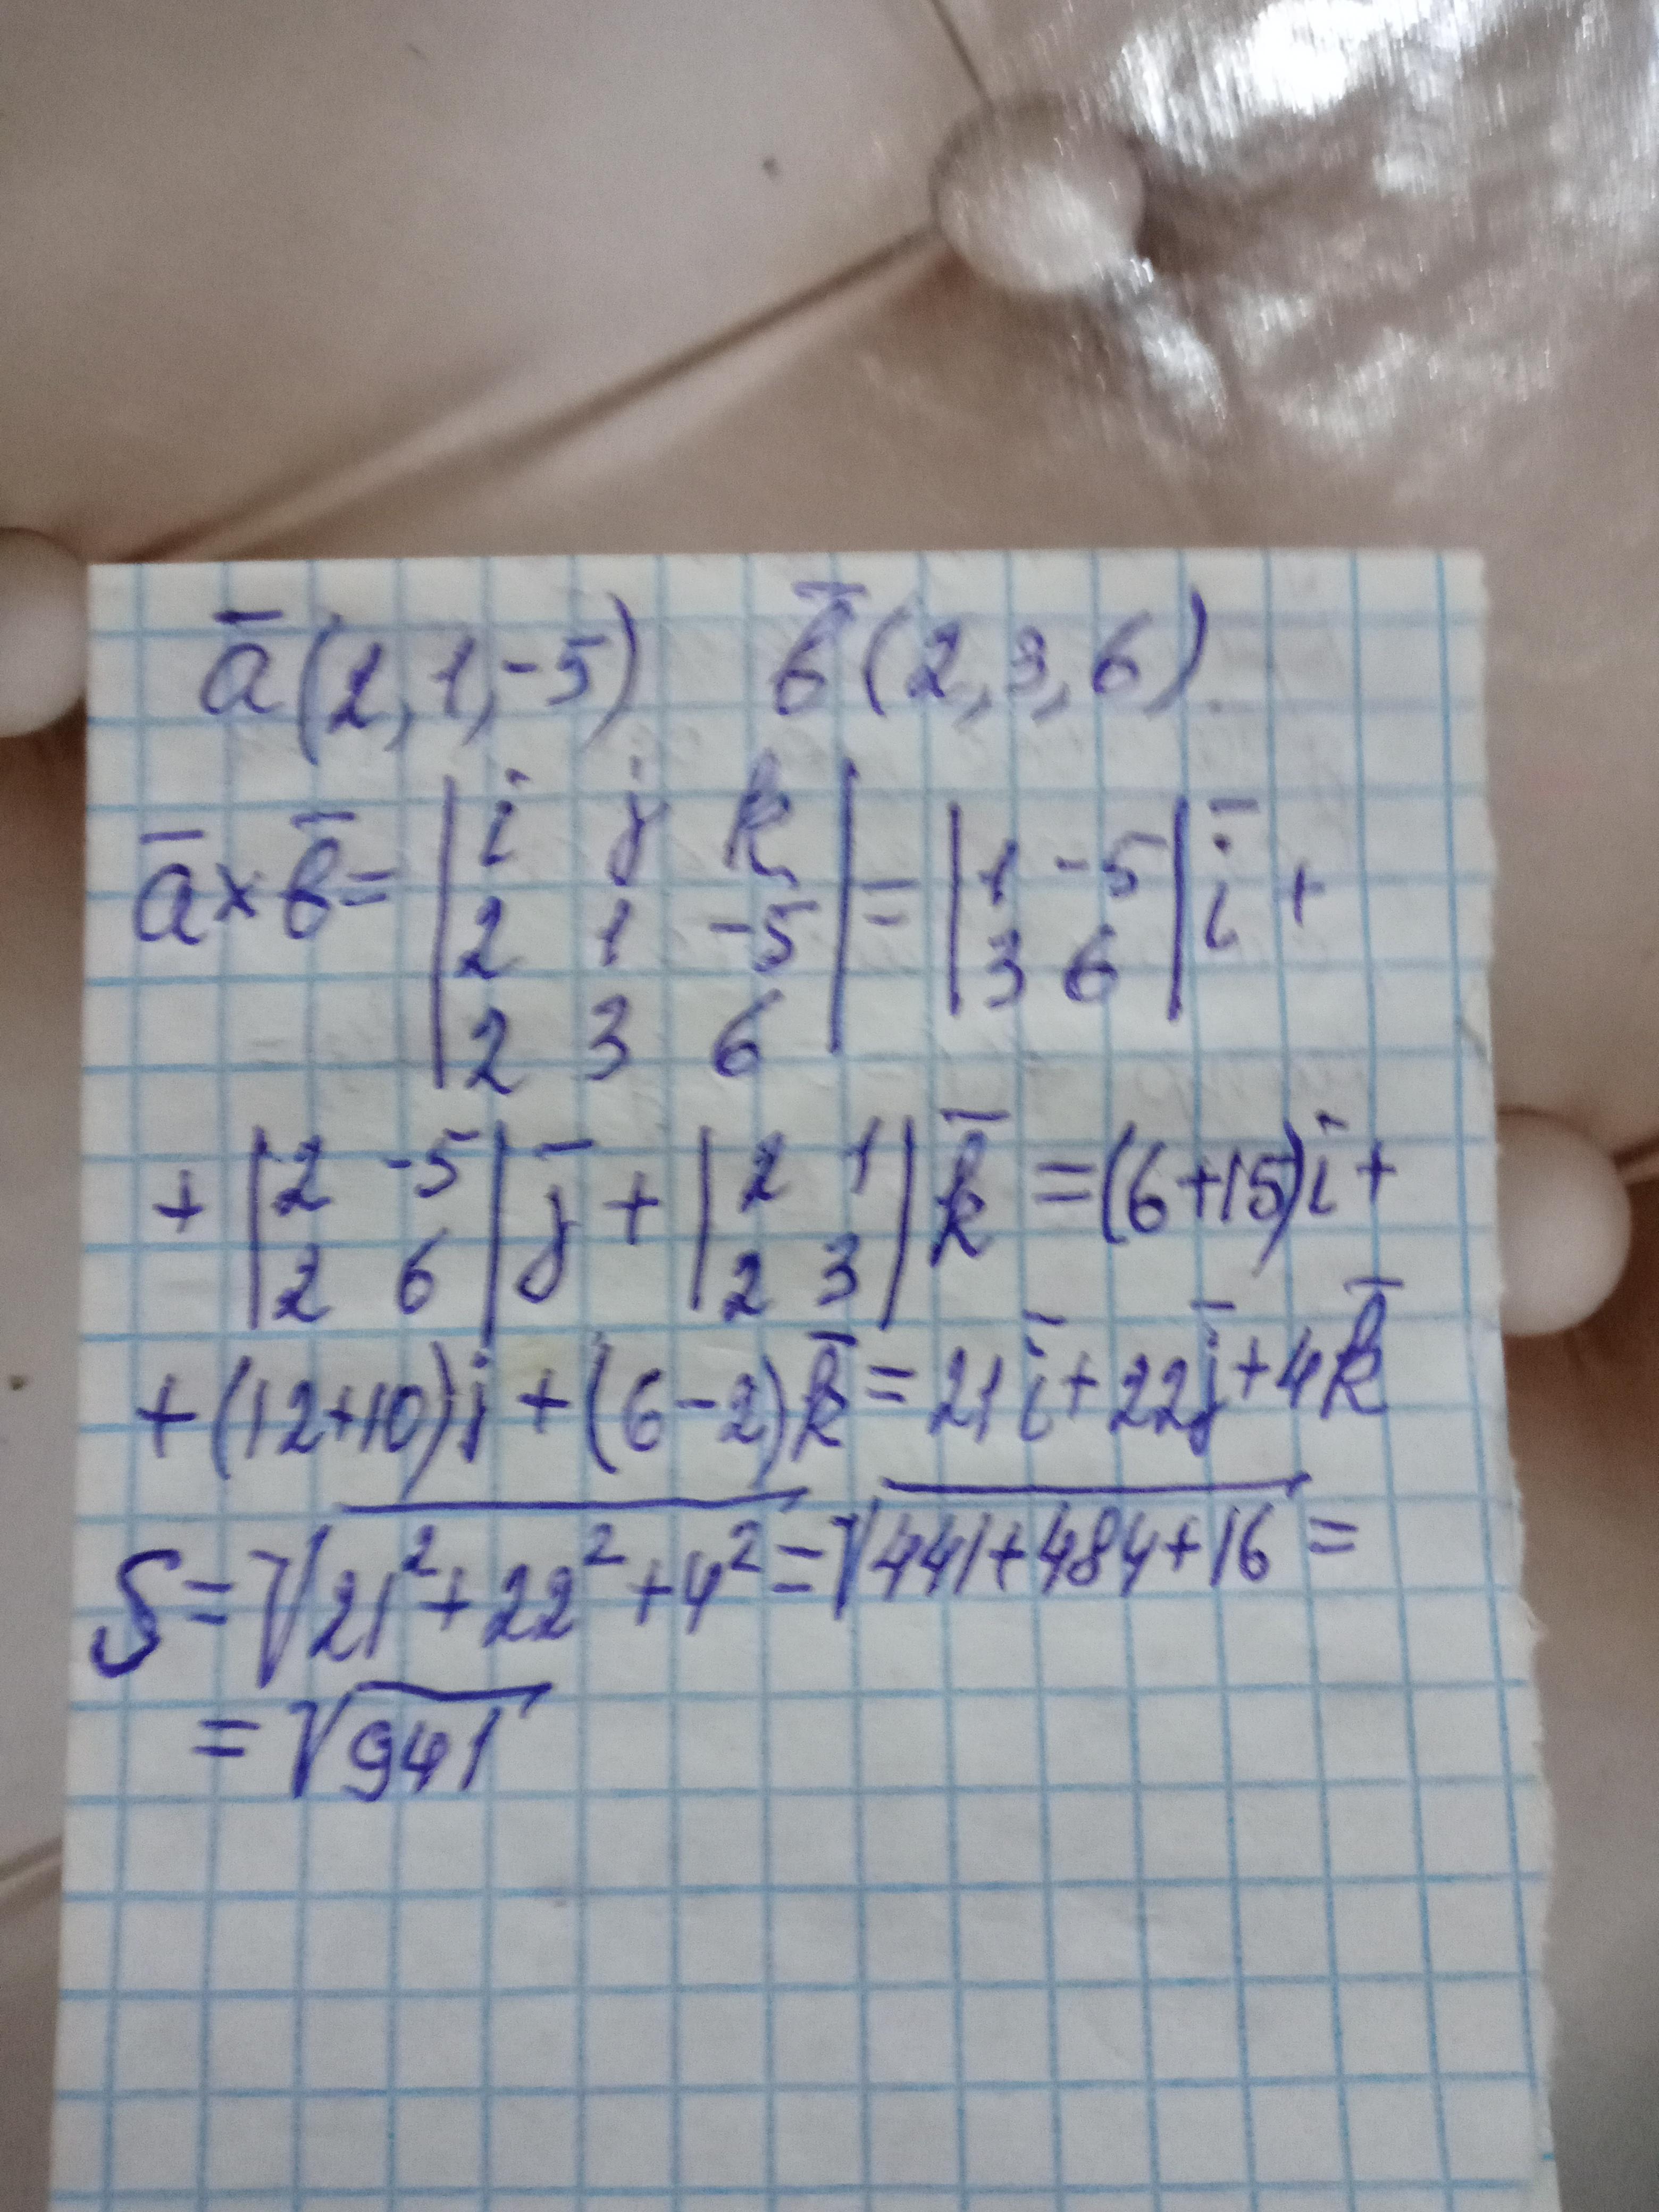 a̅(2,1,-5) b̅(2,3,6)
a̅×b̅= |i j k; 2 1 -5; 2 3 6| = |1 -5; 3 6| i̅ +
+ |2 -5; 2 6| j̅ + |2 1; 2 3| k̅ =(6+15)i̅+
+(12+10)j+(6-2)k̅=21i̅+22j̅+4k̅
S=√21²+22²+4²=√441+484+16=
=√941